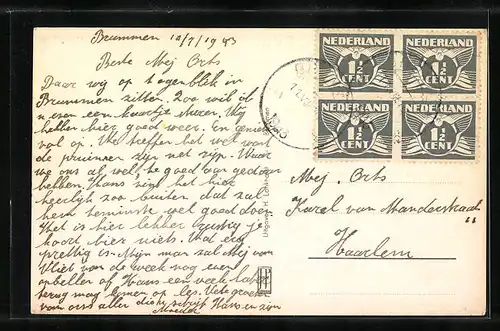 Brummen 10/7/1943
Beste Mej Orts
Daar wij op 't ogenblik in
Brummen zitten. Zoo wil ik
u even een kaartje sturen. Wij
hebben hier goed weer. En genieten
vol op. We treffen het wel want
de pruimen zijn net rijp. Waar
we ons al wel te goed aan gedaan
hebben. Hans vind het hier
heerlijk zoo buiten dat zal
hem tenminste wel goed doen.
Het is hier lekker rustig je
hoort hier niets. Wat erg
prettig is. Mijn man zal Mej van
Vliet van de week nog even
opbellen of Hans een week later
terug mag komen op les. Vele groeten
van ons allen
Hans en zijn
Moeder
NEDERLAND
1½
CENT
NEDERLAND
1½
CENT
NEDERLAND
1½
CENT
NEDERLAND
1½
CENT
Mej. Orts
Karel van Manderstraat
Haarlem